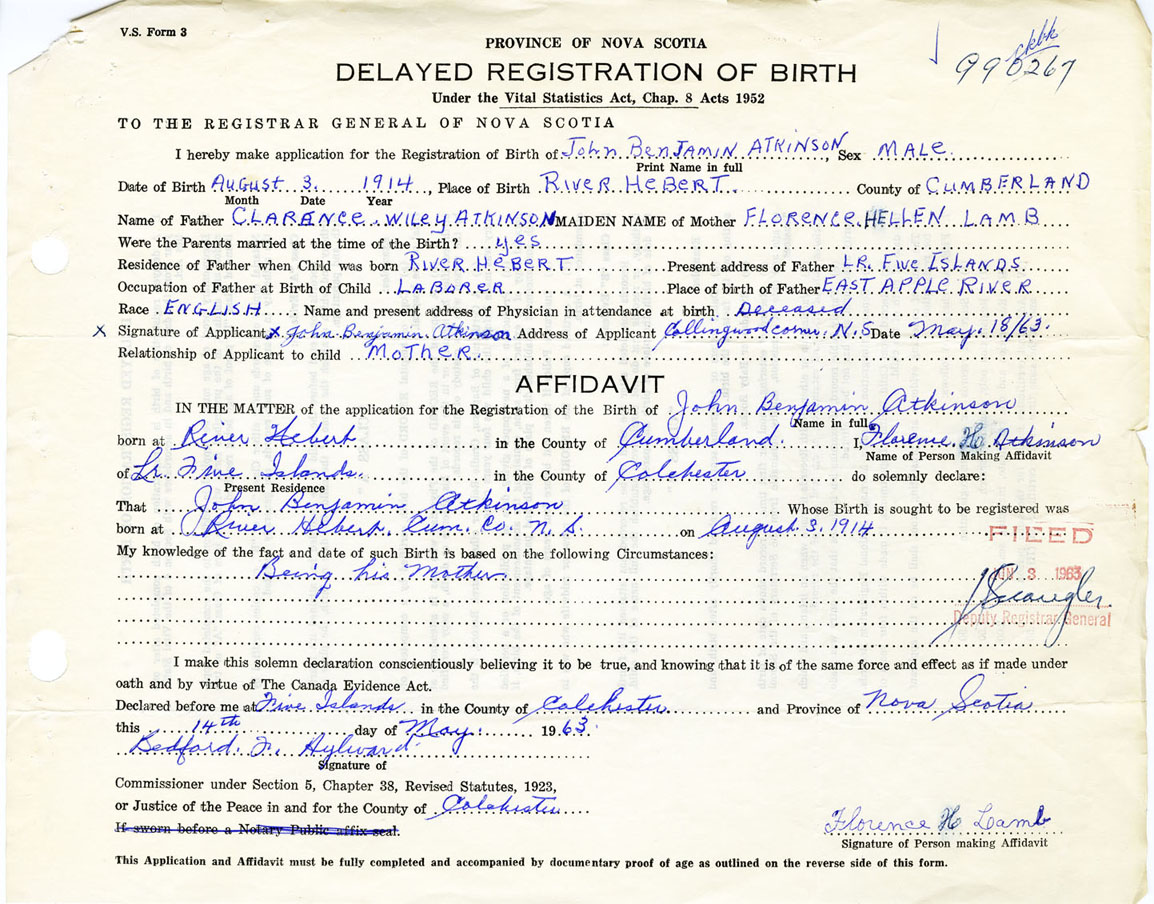 V.S. Form 3
ckbk
PROVINCE OF NOVA SCOTIA
990267
DELAYED REGISTRATION OF BIRTH
Under the Vital Statistics Act, Chap. 8 Acts 1952
TO THE REGISTRAR GENERAL OF NOVA SCOTIA
I hereby make application for the Registration of Birth of John BENJAMIN ATKINSON, Sex MALE
Print Name in full
Date of Birth AUGUST 3. 1914, Place of Birth RIVER HEBERT County of CUMBERLAND
Month Date Year
Name of Father CLARENCE WILEY ATKINSON MAIDEN NAME of Mother FLORENCE HELLEN LAMB
Were the Parents married at the time of the Birth? yes
Residence of Father when Child was born RIVER HEBERT Present address of Father LR. FIVE ISLANDS
Occupation of Father at Birth of Child LABORER Place of birth of Father EAST APPLE RIVER
Race ENGLISH Name and present address of Physician in attendance at birth Deceased
X Signature of Applicant X John Benjamin Atkinson Address of Applicant Collingwood corner N.S Date May 18/63.
Relationship of Applicant to child MOTHER
AFFIDAVIT
IN THE MATTER of the application for the Registration of the Birth of John Benjamin Atkinson
Name in full
born at River Hebert in the County of Cumberland I, Florence H Atkinson
Name of Person Making Affidavit
of Lr. Five Islands in the County of Colchester do solemnly declare:
Present Residence
That John Benjamin Atkinson Whose Birth is sought to be registered was
born at River Hebert. Cum. Co. N.S. on August 3. 1914
FILED
My knowledge of the fact and date of such Birth is based on the following Circumstances:
Being his Mother
JUN 3 1963
Deputy Registrar General
I make this solemn declaration conscientiously believing it to be true, and knowing that it is of the same force and effect as if made under
oath and by virtue of The Canada Evidence Act.
Declared before me at Five Islands in the County of Colchester and Province of Nova Scotia
this 14th day of May 1963
Bedford F. Aylward
Signature of
Commissioner under Section 5, Chapter 38, Revised Statutes, 1923,
or Justice of the Peace in and for the County of Colchester
If sworn before a Notary Public affix seal.
Florence H Lamb
Signature of Person making Affidavit
This Application and Affidavit must be fully completed and accompanied by documentary proof of age as outlined on the reverse side of this form.